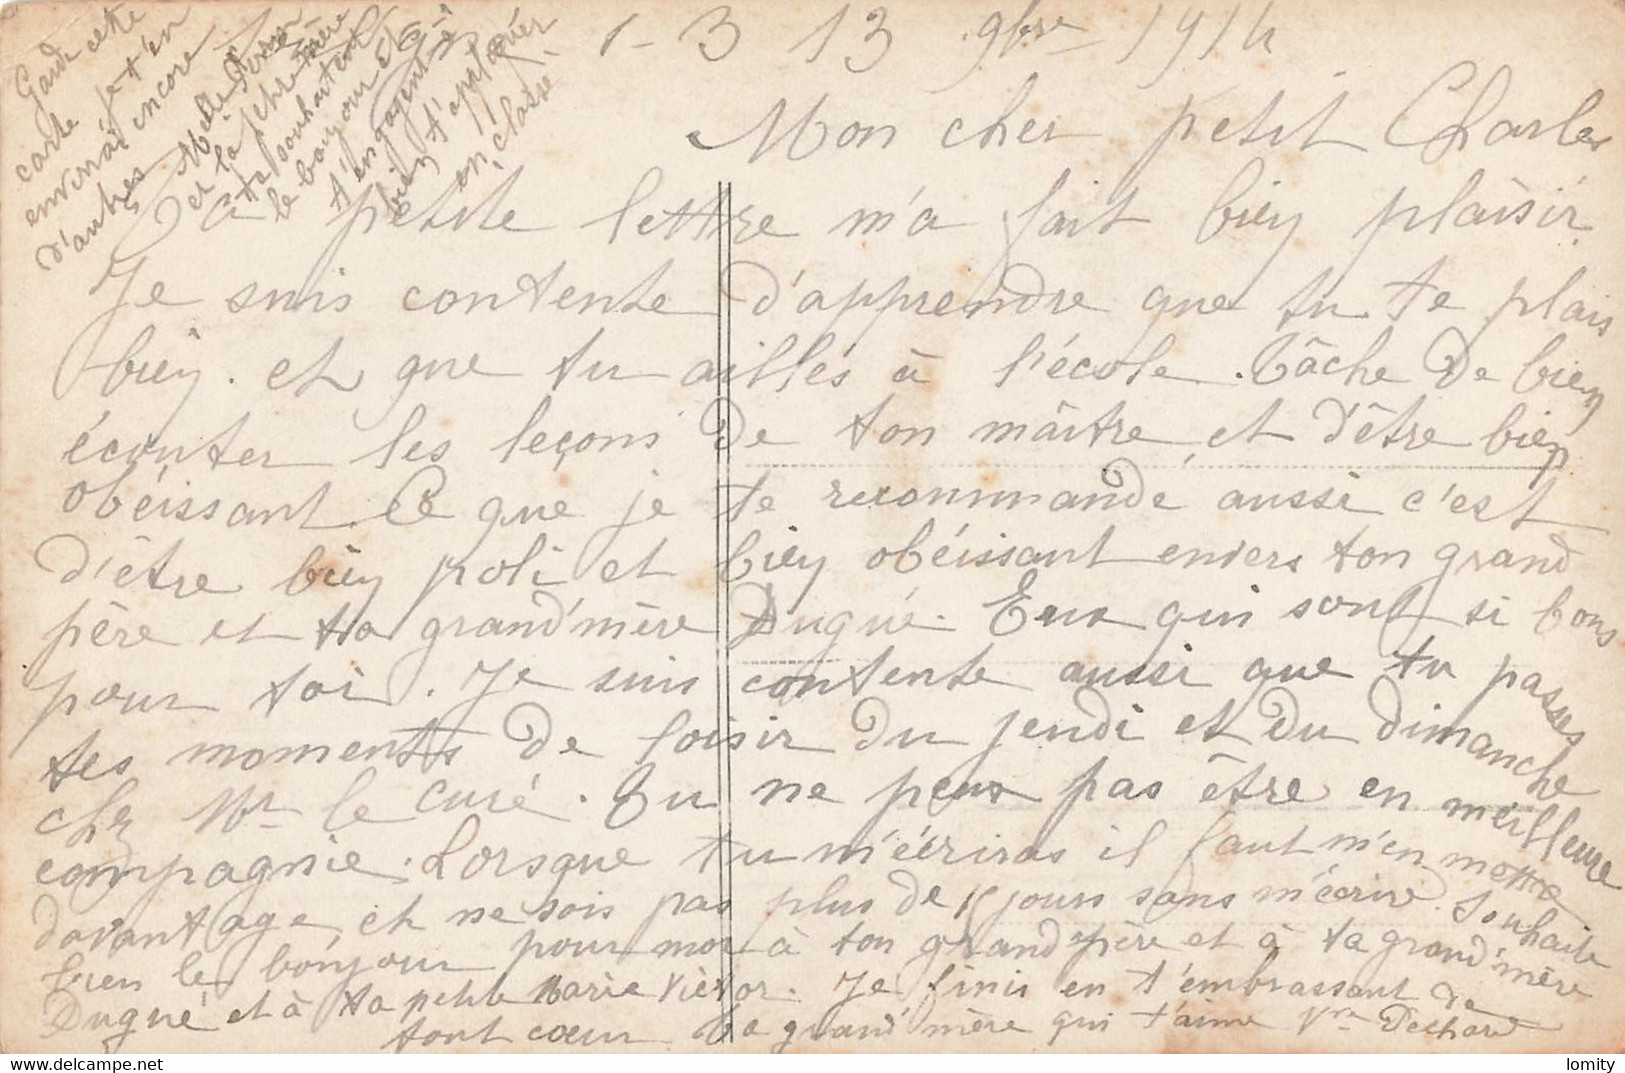 Garde cette
carte je t'en
enverrai encore
d'autres Melle
et la petite mère
te souhaitent
le bonjour et
t'engagent à
bien t'appliquer
en classe
13 9bre 1914
Mon cher petit Charles
Ta petite lettre m'a fait bien plaisir.
Je suis contente d'apprendre que tu te plais
bien. et que tu ailles à l'école. Tâche de bien
écouter les leçons de ton maître, et d'être bien
obéissant. Ce que je te recommande aussi c'est
d'être bien poli et bien obéissant envers ton grand
père et ta grand'mère Dugué. Eux qui sont si bons
pour toi. Je suis contente aussi que tu passes
tes moments de loisir du jeudi et du dimanche
chez Mr le curé. Tu ne peux pas être en meilleure
compagnie. Lorsque tu m'écriras il faut m'en mettre
davantage et ne sois pas plus de 15 jours sans m'écrire. Souhaite
bien le bonjour pour moi à ton grand père et à ta grand'mère
Dugué et à ta petite Marie Victor. Je finis en t'embrassant de
tout coeur Ta grand'mère qui t'aime Vve Dechard
lomity